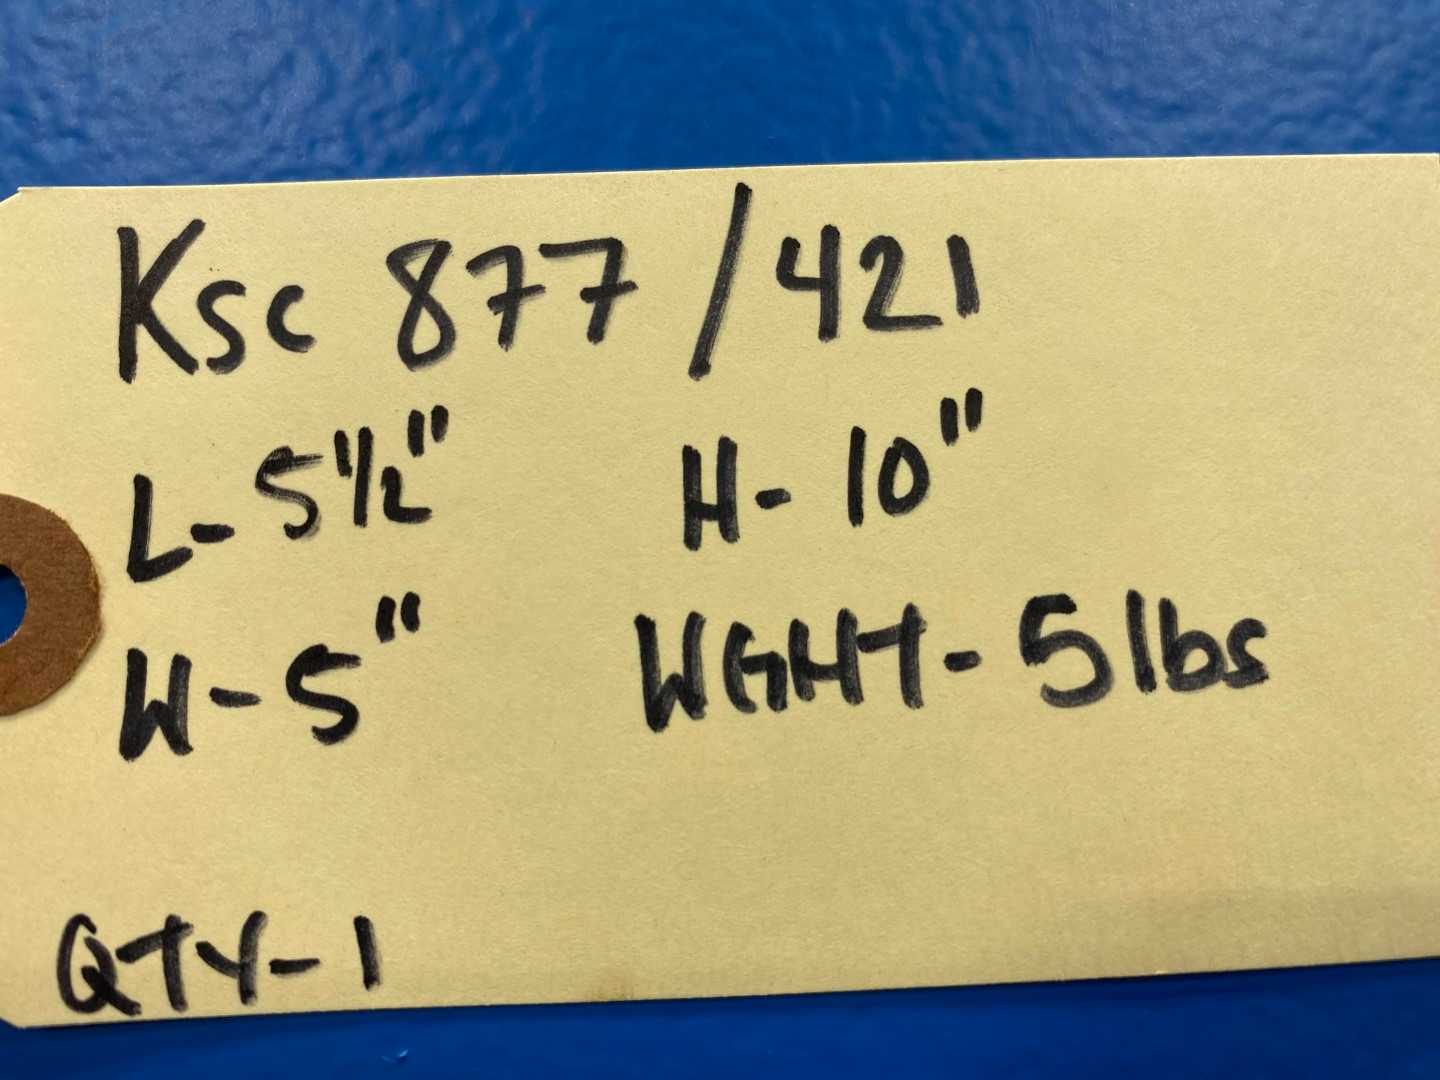 Ksc 877/421
L-5 1/2" H-10"
W-5" WGHT-5lbs
QTY-1